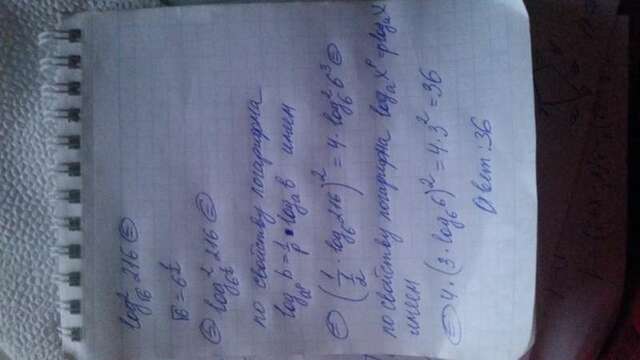 log²_√6 216 =
√6 = 6^½
= log²_6^½ 216 =
по свойству логарифма
log_a^p b = 1/p · log_a b имеем
= (1/(1/2) · log_6 216)² = 4 · log²_6 6³ =
по свойству логарифма log_a x^p = p log_a x
имеем
= 4 · (3 · log_6 6)² = 4 · 3² = 36
Ответ: 36